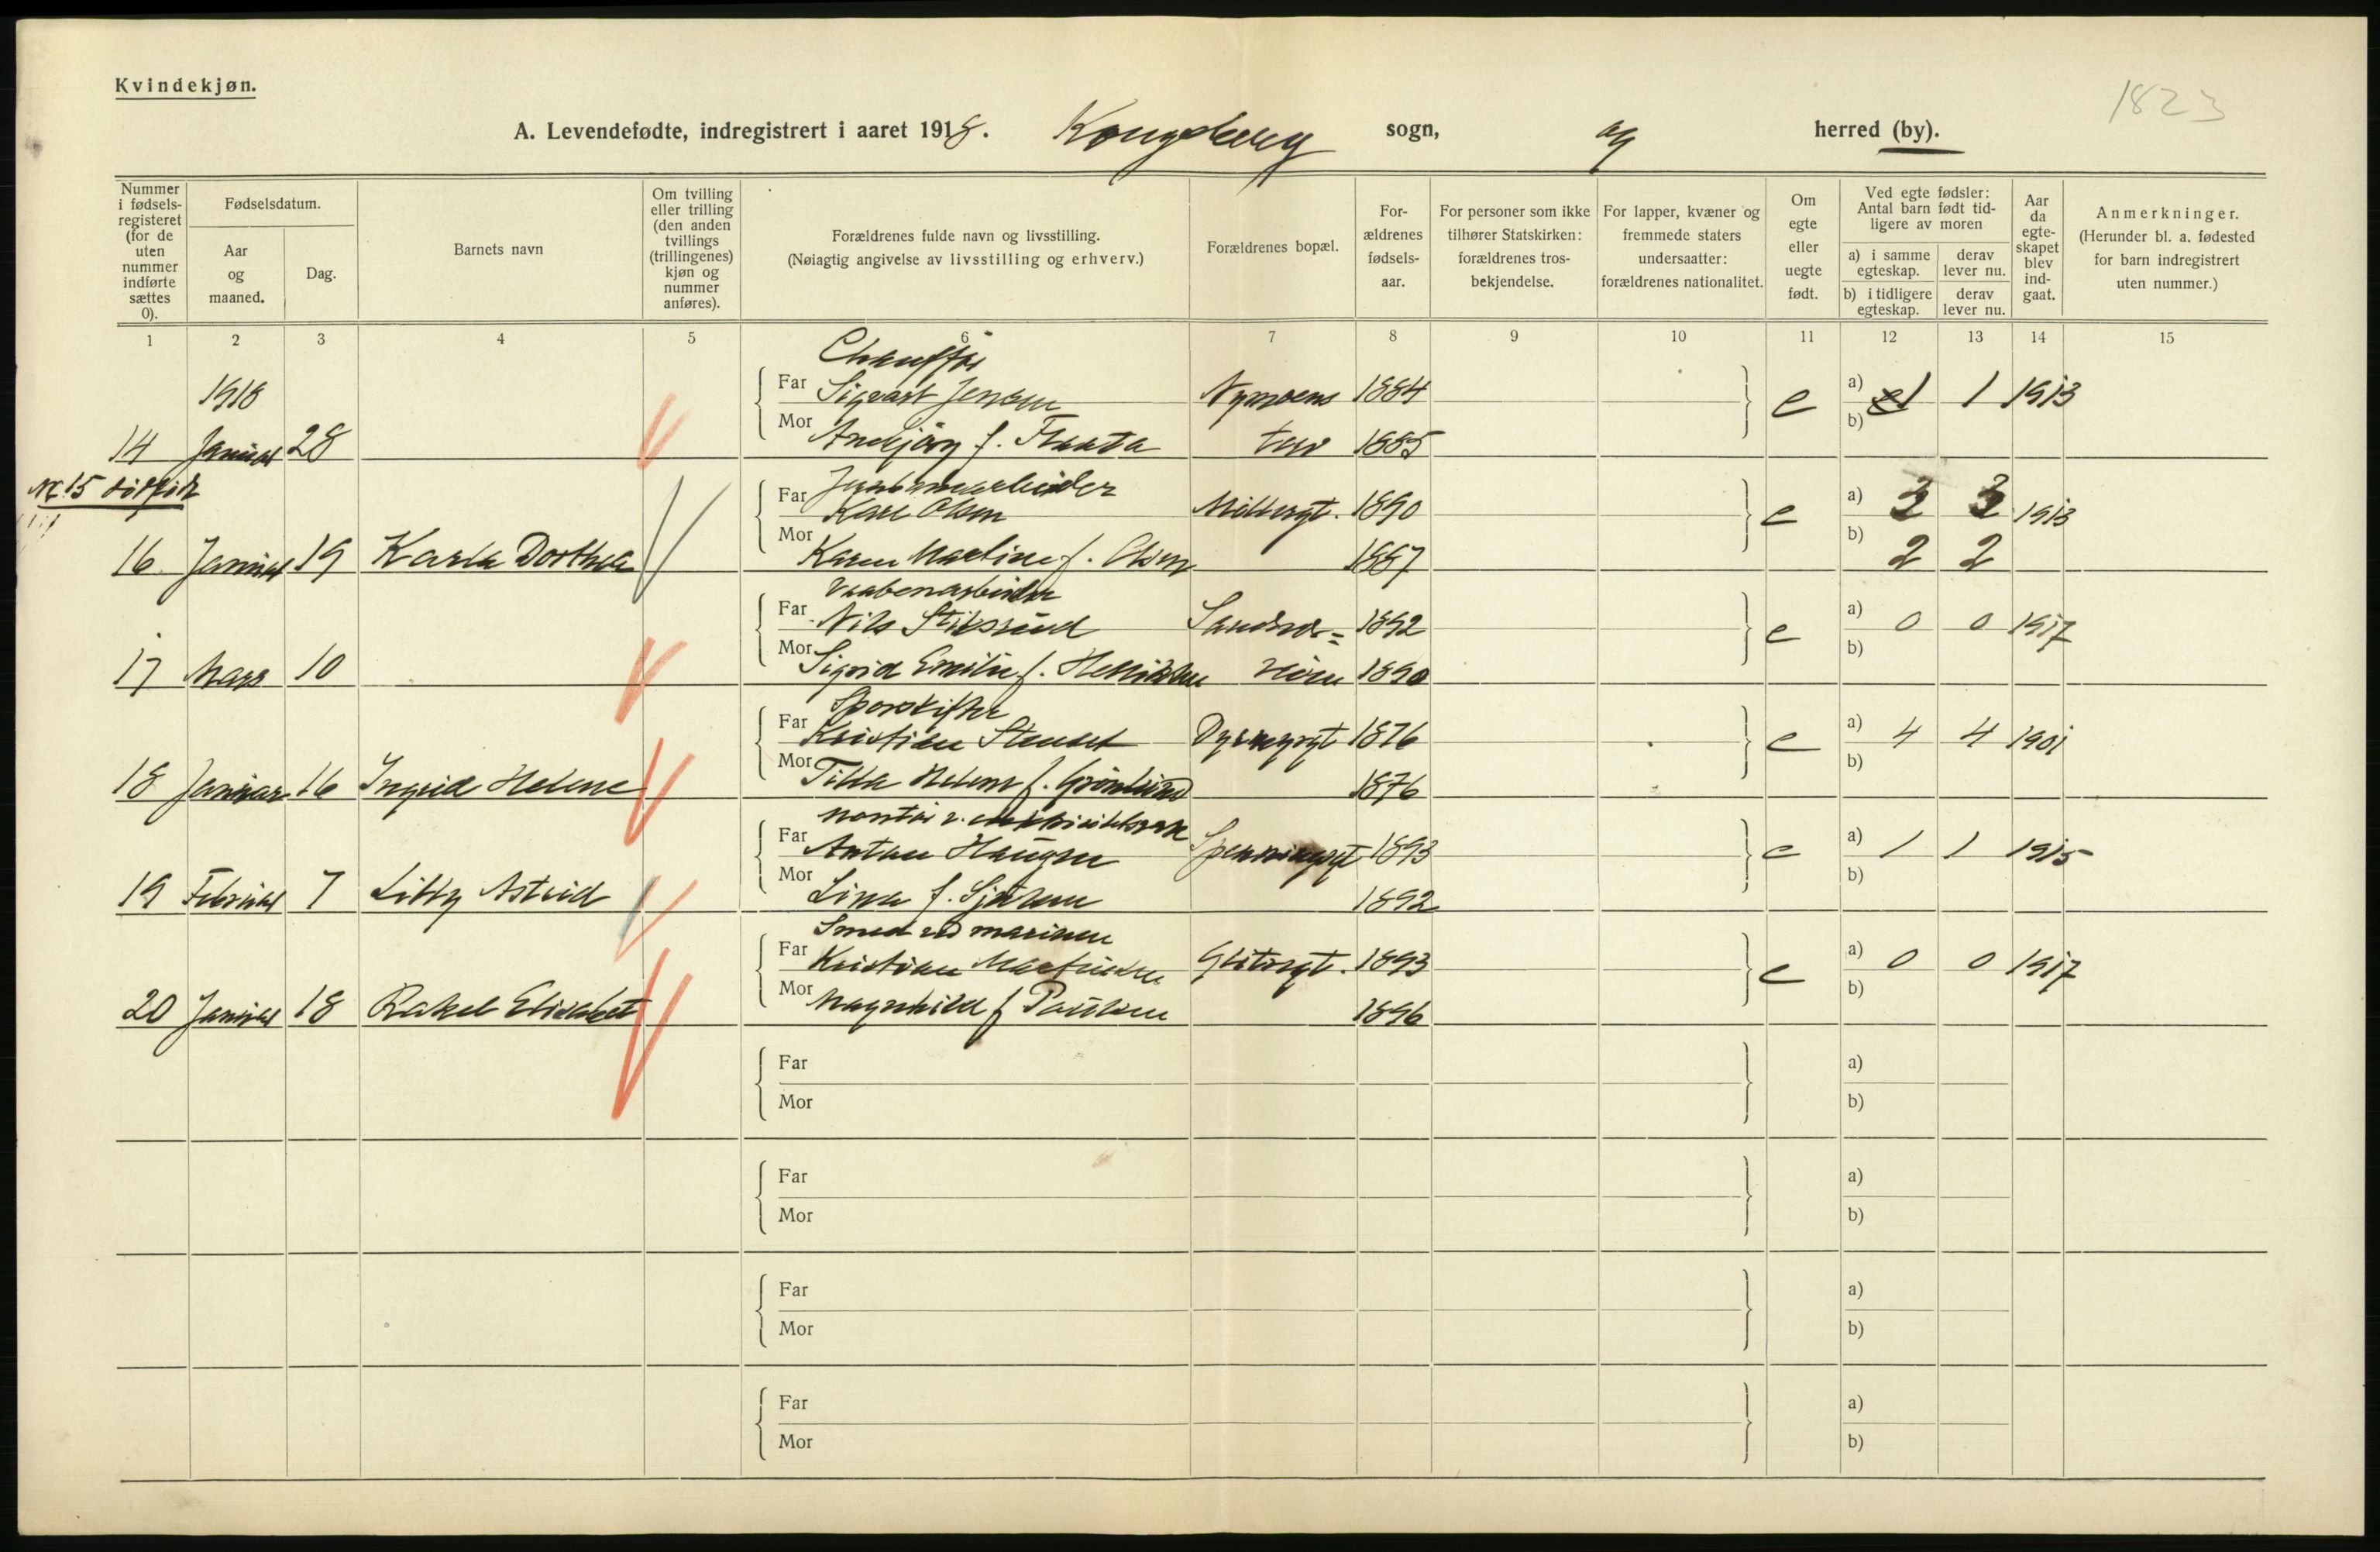 Kvindekjøn.
1823
A. Levendefødte, indregistrert i aaret 1918. Kongsberg sogn, og herred (by).
Nummer i fødsels-registeret (for de uten nummer indførte sættes 0).
Fødselsdatum.
Aar og maaned.
Dag.
Barnets navn
Om tvilling eller trilling (den anden tvillings (trillingenes) kjøn og nummer anføres).
Forældrenes fulde navn og livsstilling.
(Nøiagtig angivelse av livsstilling og erhverv.)
Forældrenes bopæl.
For-ældrenes fødsels-aar.
For personer som ikke tilhører Statskirken: forældrenes tros-bekjendelse.
For lapper, kvæner og fremmede staters undersaatter: forældrenes nationalitet.
Om egte eller uegte født.
Ved egte fødsler: Antal barn født tid-ligere av moren
a) i samme egteskap.
derav lever nu.
b) i tidligere egteskap.
derav lever nu.
Aar da egte-skapet blev ind-gaat.
Anmerkninger.
(Herunder bl. a. fødested for barn indregistrert uten nummer.)
1 2 3 4 5 6 7 8 9 10 11 12 13 14 15
Chauffør
1918 Far Sigvart Jensen Nymoens 1884 e a) 1 1 1913
14 Januar 28 Mor f. Flaata torv 1885 b)
Nr. 15 dødfødt
Far Karl Olsen Møllergt. 1890 e a) 3 3 1913
16 Januar 19 Karla Dorthea Mor Karen Martine f. Olsen 1887 b) 2 2
Vaabenarbeider
Far Nils Stiksrud Sandsvær= 1892 e a) 0 0 1917
17 Mars 10 Mor Sigrid Emilie f. 1890 b)
Sporskifter
Far Kristian Stenset Dyrmyrgt 1876 e a) 4 4 1901
18 Januar 16 Ingrid Helene Mor Tilda Helene f. Grønlund 1876 b)
Montør v. elektricitetsverk
Far Anton Haugen Spenningsgt 1893 e a) 1 1 1915
19 Februar 7 Libby Astrid Mor Lina f. 1892 b)
Smed ved marinen
Far Kristian Martinsen Glitregt. 1893 e a) 0 0 1917
20 Januar 18 Rakel Elisabet Mor Magnhild f Paulsen 1896 b)
Far a)
Mor b)
Far a)
Mor b)
Far a)
Mor b)
Far a)
Mor b)